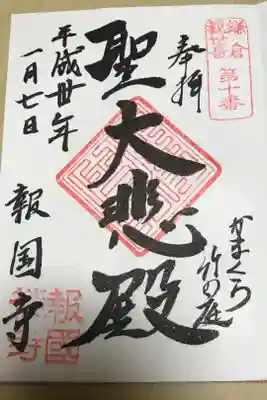 鎌倉
観世音
第十番
奉拝
かまくら
竹の庭
聖大悲殿
平成卅年
一月七日
報国寺
報國